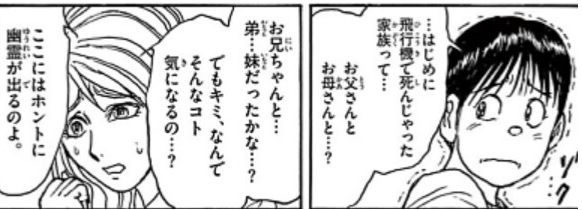 …はじめに
飛行機で死んじゃった
家族って…
お父さんと
お母さんと…?
お兄ちゃんと…
弟…妹だったかな…?
でもキミ、なんで
そんなコト
気になるの…?
ここにはホントに
幽霊が出るのよ。